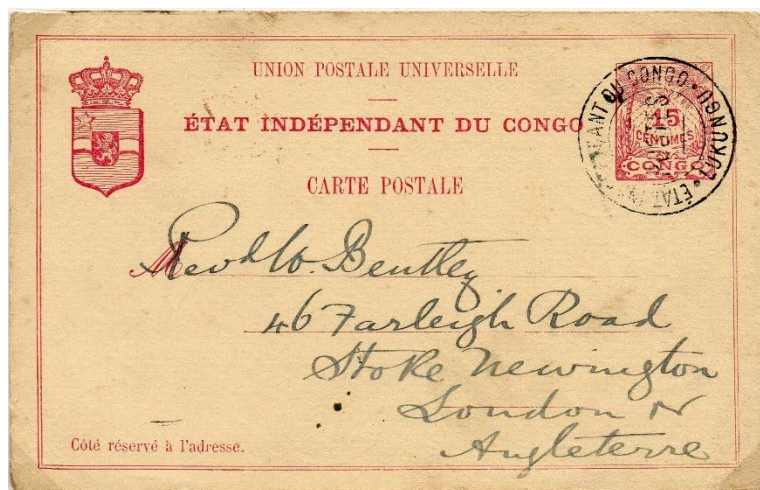 UNION POSTALE UNIVERSELLE
ÉTAT INDÉPENDANT DU CONGO
CARTE POSTALE
15
CENTIMES
CONGO
ÉTAT INDÉPENDANT DU CONGO · LUKUNGU ·
Revd W. Bentley
46 Farleigh Road
Stoke Newington
London N
Angleterre
Côté réservé à l'adresse.